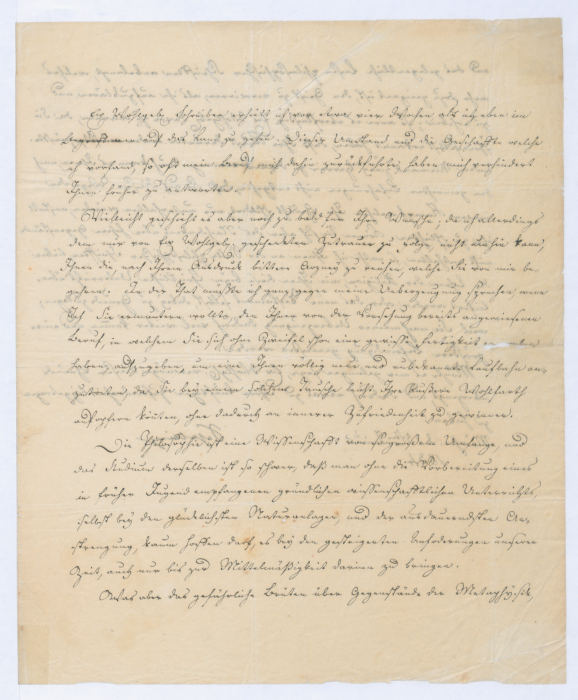 Ew. Wohlgeb. Schreiben erhielt ich vor etwa vier Wochen als ich eben im
Begriff war auf das Land zu gehen. Dieser Umstand und die Geschäffte welche
ich vorfand, so oft mein Beruf mich dahin zurückführte, haben mich verhindert
Ihnen früher zu antworten.
Vielleicht geschieht es aber noch zu früh für Ihre Wünsche, da ich allerdings
dem mir von Ew. Wohlgeb. geschenkten Zutrauen zu Folge, nicht umhin kann,
Ihnen die, nach Ihrem Ausdruck bittere Arzney zu reichen, welche Sie von mir be
gehren. In der That müßte ich ganz gegen meine Ueberzeugung sprechen, wenn
ich Sie ermuntern wollte, den Ihnen von der Vorsehung bereits angewiesenen
Beruf, in welchem Sie sich ohne Zweifel schon eine gewisse Fertigkeit erworben
haben, aufzugeben, um eine Ihnen völlig neue und unbekannte Laufbahn an-
zutreten, da Sie bey einem solchen Tausche leicht Ihre äußere Wohlfarth
aufopfern könnten, ohne dadurch an innerer Zufriedenheit zu gewinnen.
Die Philosophie ist eine Wissenschaft von so großem Umfange, und
das Studium derselben ist so schwer, daß man ohne die Vorbereitung eines
in früher Jugend empfangenen gründlichen wissenschaftlichen Unterrichts,
selbst bey den glücklichsten Naturanlagen, und der ausdauerndsten An-
strengung, kaum hoffen darf, es bey den gesteigerten Anforderungen unserer
Zeit, auch nur bis zur Mittelmäßigkeit darinn zu bringen.
Was aber das gefährliche Brüten über Gegenstände der Metaphysik,